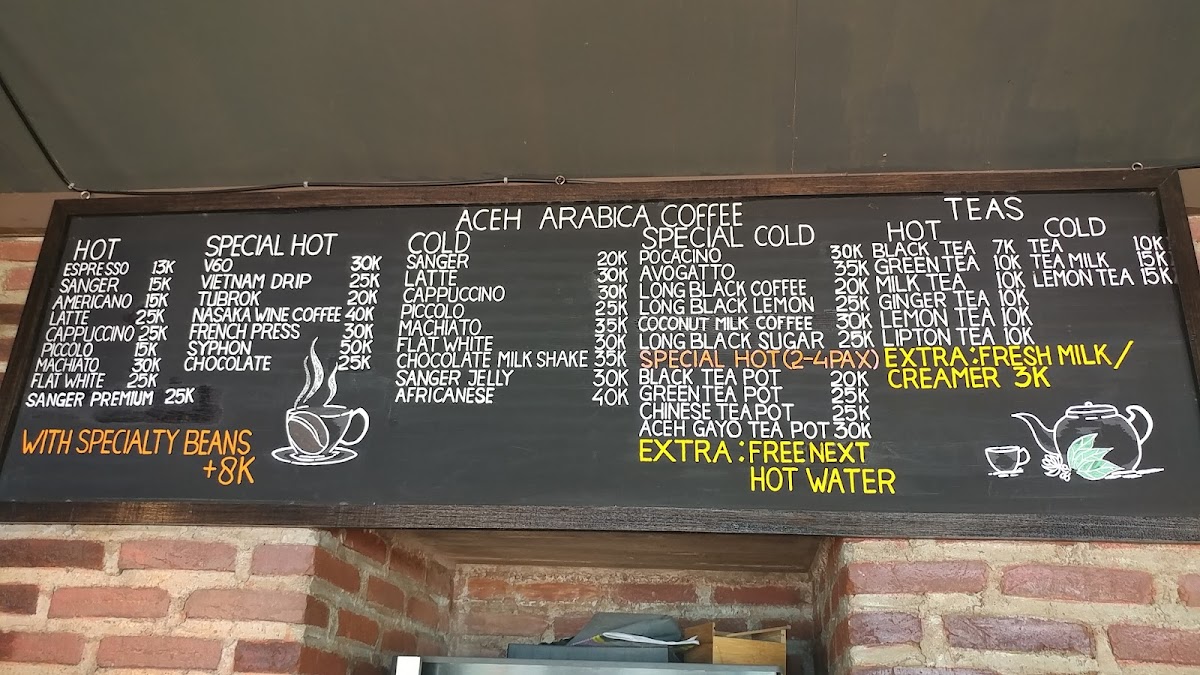 ACEH ARABICA COFFEE
HOT
ESPRESSO 13K
SANGER 15K
AMERICANO 15K
LATTE 25K
CAPPUCCINO 25K
PICCOLO 15K
MACHIATO 30K
FLAT WHITE 25K
SANGER PREMIUM 25K
WITH SPECIALTY BEANS
+8K
SPECIAL HOT
V60 30K
VIETNAM DRIP 25K
TUBROK 20K
NASAKA WINE COFFEE 40K
FRENCH PRESS 30K
SYPHON 50K
CHOCOLATE 25K
COLD
SANGER 20K
LATTE 30K
CAPPUCCINO 30K
PICCOLO 25K
MACHIATO 35K
FLAT WHITE 30K
CHOCOLATE MILK SHAKE 35K
SANGER JELLY 30K
AFRICANESE 40K
SPECIAL COLD
POCACINO 30K
AVOGATTO 35K
LONG BLACK COFFEE 20K
LONG BLACK LEMON 25K
COCONUT MILK COFFEE 30K
LONG BLACK SUGAR 25K
SPECIAL HOT (2-4PAX)
BLACK TEA POT 20K
GREEN TEA POT 25K
CHINESE TEA POT 25K
ACEH GAYO TEA POT 30K
EXTRA : FREE NEXT
HOT WATER
TEAS
HOT
BLACK TEA 7K
GREEN TEA 10K
MILK TEA 10K
GINGER TEA 10K
LEMON TEA 10K
LIPTON TEA 10K
EXTRA : FRESH MILK/
CREAMER 3K
COLD
TEA 10K
TEA MILK 15K
LEMON TEA 15K